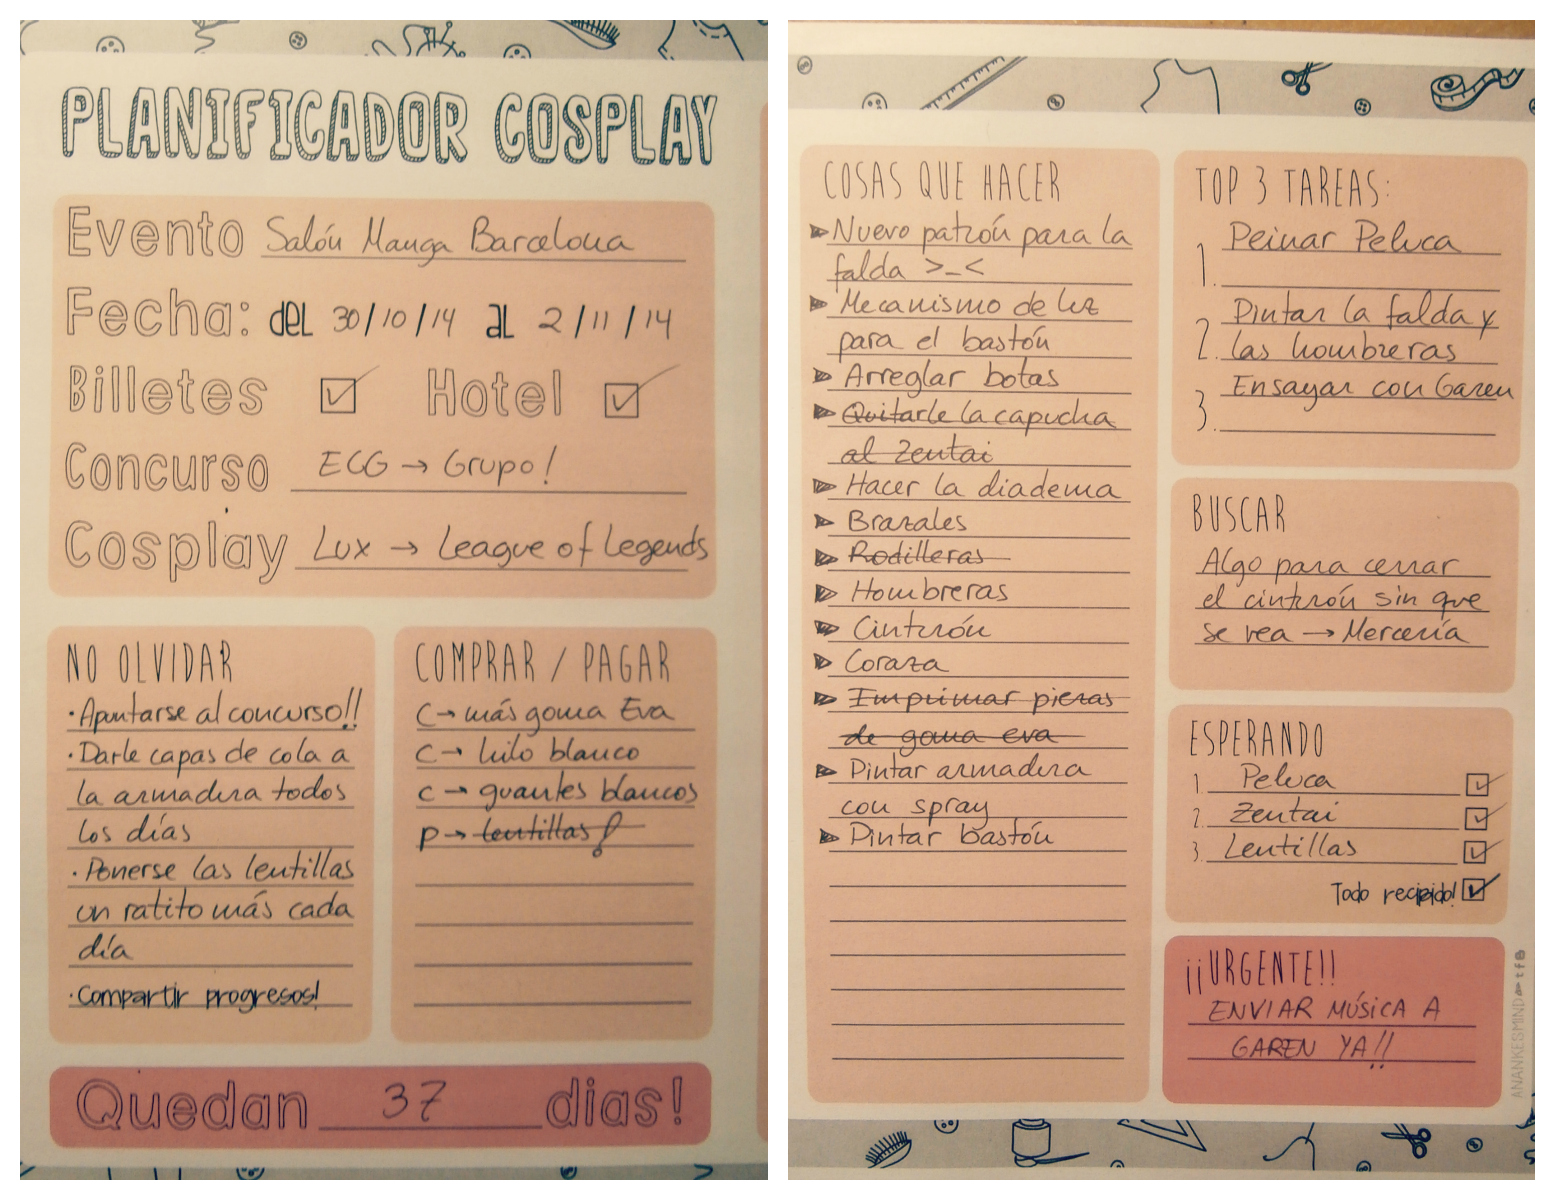 PLANIFICADOR COSPLAY
Evento Salón Manga Barcelona
Fecha: del 30/10/14 al 2/11/14
Billetes Hotel
Concurso ECG → Grupo!
Cosplay Lux → League of Legends
NO OLVIDAR
· Apuntarse al concurso!!
· Darle capas de cola a
la armadura todos
los días
· Ponerse las lentillas
un ratito más cada
día
· Compartir progresos!
COMPRAR / PAGAR
C → más goma Eva
C → hilo blanco
C → guantes blancos
P → lentillas
Quedan 37 dias!
COSAS QUE HACER
Nuevo patrón para la
falda >_<
Mecanismo de luz
para el bastón
Arreglar botas
Quitarle la capucha
al Zentai
Hacer la diadema
Brazales
Rodilleras
Hombreras
Cinturón
Coraza
Imprimar piezas
de goma eva
Pintar armadura
con spray
Pintar bastón
TOP 3 TAREAS:
1. Peinar Peluca
2. Pintar la falda y
las hombreras
3. Ensayar con Garen
BUSCAR
Algo para cerrar
el cinturón sin que
se vea → Mercería
ESPERANDO
1. Peluca
2. Zentai
3. Lentillas
Todo recibido!
¡¡URGENTE!!
ENVIAR MÚSICA A
GAREN YA!!
ANANKESMIND